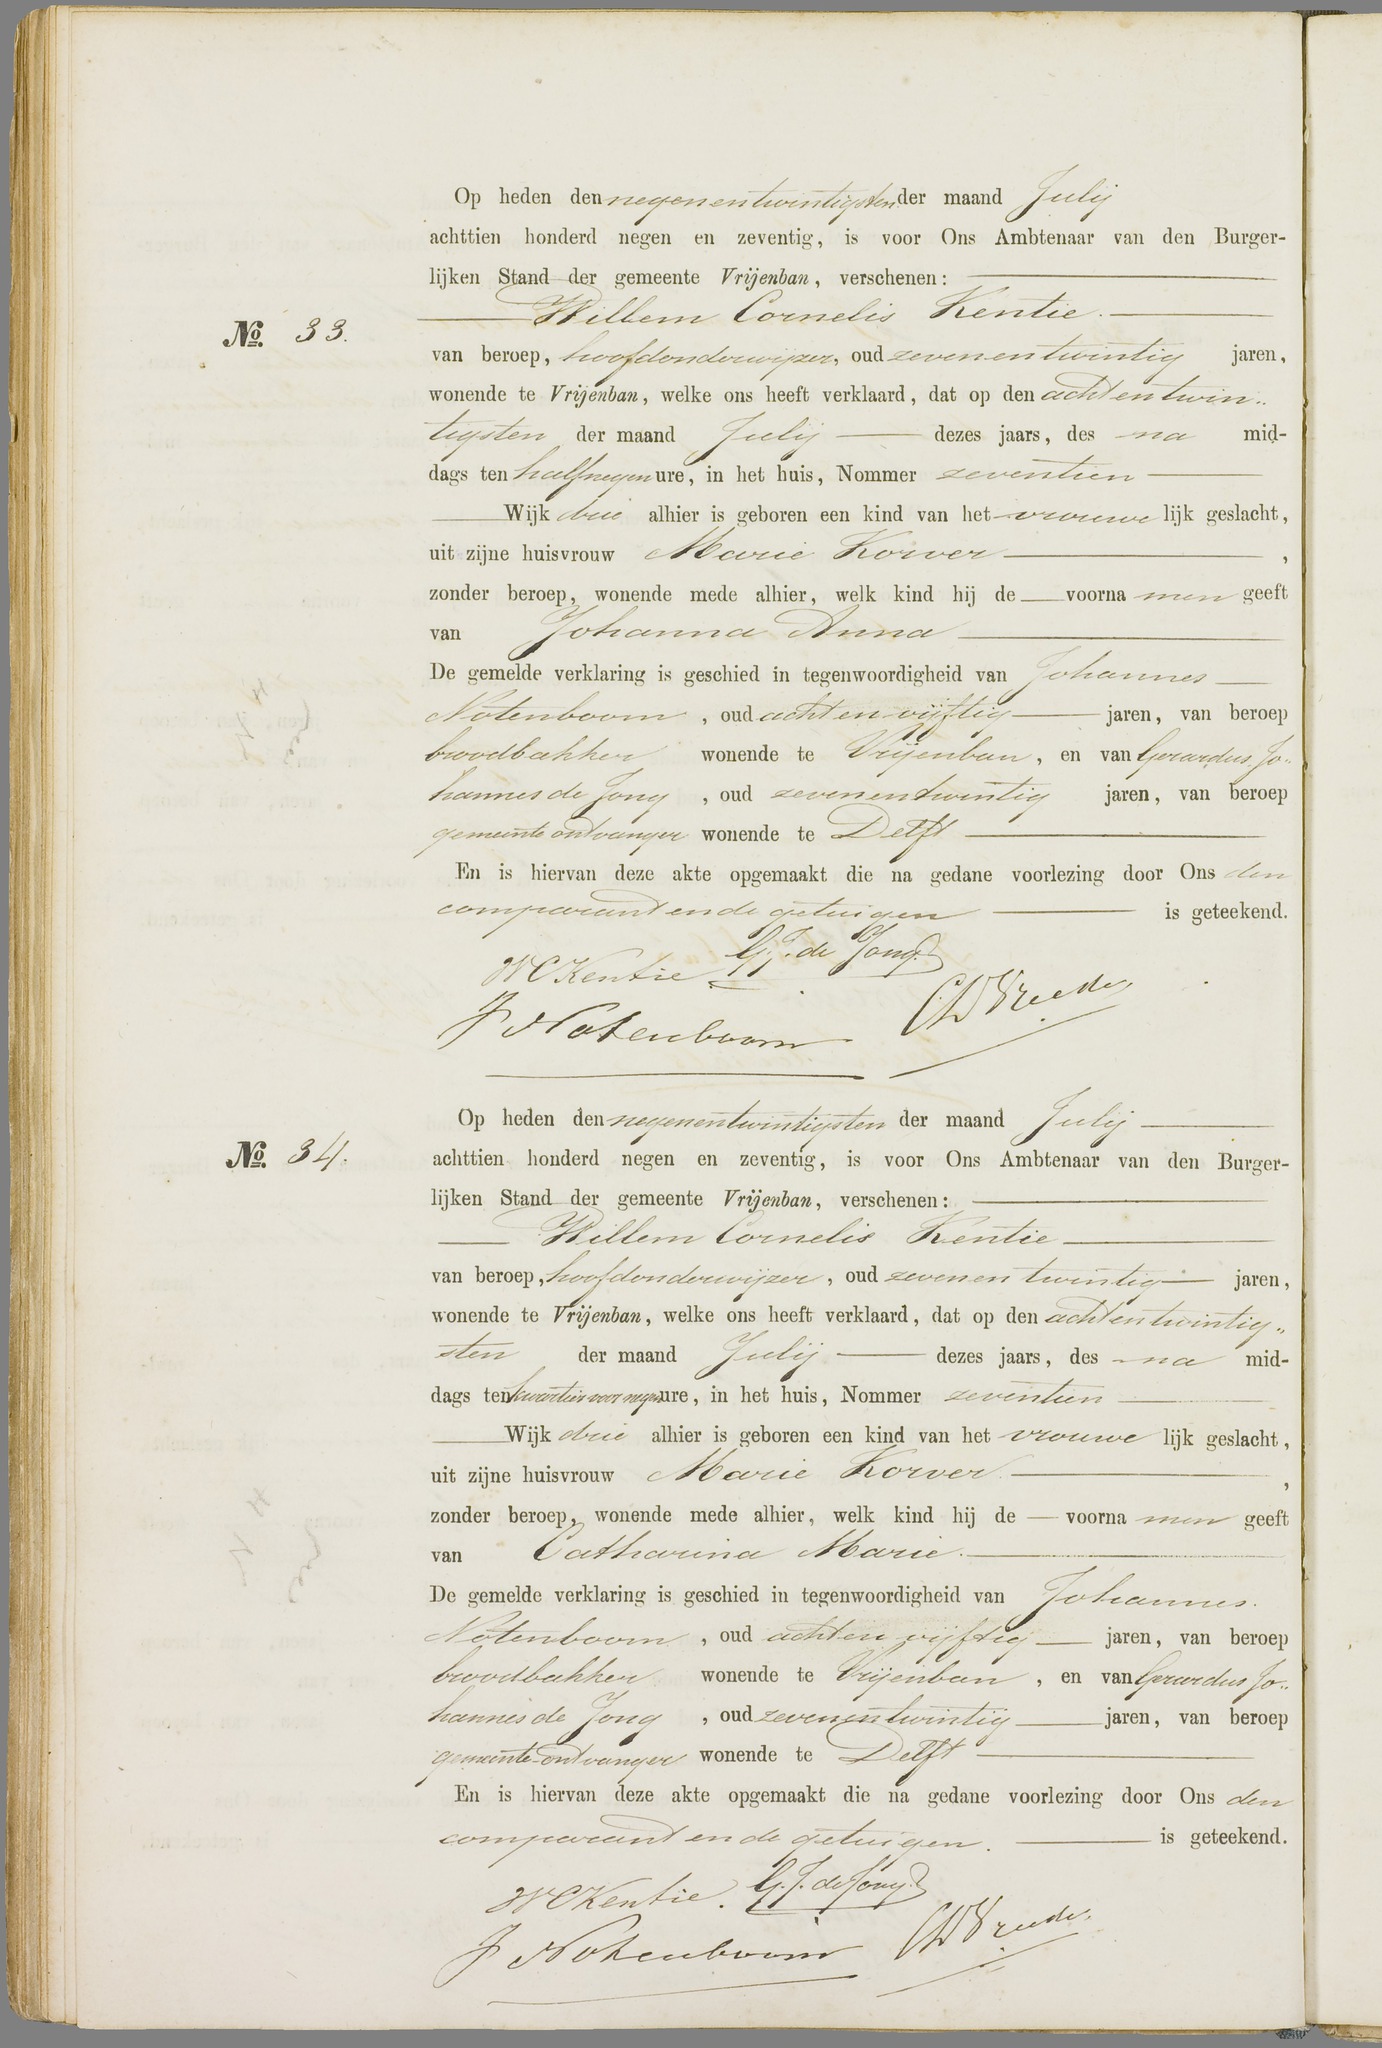 Op heden den negenentwintigsten der maand Julij
achttien honderd negen en zeventig, is voor Ons Ambtenaar van den Burger-
lijken Stand der gemeente Vrijenban, verschenen:
Willem Cornelis Kentie.
No. 33.
van beroep, hoofdonderwijzer, oud zevenentwintig jaren,
wonende te Vrijenban, welke ons heeft verklaard, dat op den achtentwin„
tigsten der maand Julij dezes jaars, des na mid-
dags ten half negen ure, in het huis, Nommer zeventien
Wijk drie alhier is geboren een kind van het vrouwe lijk geslacht,
uit zijne huisvrouw Marie Korver,
zonder beroep, wonende mede alhier, welk kind hij de voorna men geeft
van Johanna Anna
De gemelde verklaring is geschied in tegenwoordigheid van Johannes
Notenboom, oud achtenvijftig jaren, van beroep
broodbakker wonende te Vrijenban, en van Gerardus Jo„
hannes de Jong, oud zevenentwintig jaren, van beroep
gemeente ontvanger wonende te Delft
En is hiervan deze akte opgemaakt die na gedane voorlezing door Ons den
comparant en de getuigen is geteekend.
WCKentie G.J. de Jong
J Notenboom
Op heden den negenentwintigsten der maand Julij
No. 34.
achttien honderd negen en zeventig, is voor Ons Ambtenaar van den Burger-
lijken Stand der gemeente Vrijenban, verschenen:
Willem Cornelis Kentie
van beroep, hoofdonderwijzer, oud zevenentwintig jaren,
wonende te Vrijenban, welke ons heeft verklaard, dat op den achtentwintig„
sten der maand Julij dezes jaars, des na mid-
dags ten kwartier voor negen ure, in het huis, Nommer zeventien
Wijk drie alhier is geboren een kind van het vrouwe lijk geslacht,
uit zijne huisvrouw Marie Korver,
zonder beroep, wonende mede alhier, welk kind hij de voorna men geeft
van Catharina Marie.
De gemelde verklaring is geschied in tegenwoordigheid van Johannes
Notenboom, oud achtenvijftig jaren, van beroep
broodbakker wonende te Vrijenban, en van Gerardus Jo„
hannes de Jong, oud zevenentwintig jaren, van beroep
gemeente-ontvanger wonende te Delft
En is hiervan deze akte opgemaakt die na gedane voorlezing door Ons den
comparant en de getuigen. is geteekend.
WCKentie. G.J. de Jong
J Notenboom